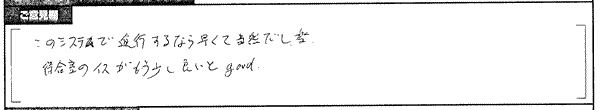 ご意見欄
このシステムで進行するなら早くて当然だし
待合室のイスがもう少し良いと good.